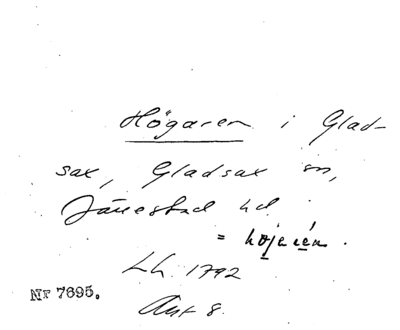 Högaren i Glad-
sax, Gladsax sn,
Järrestad hd.
= højerén.
Lh. 1792
Akt 8.
Nr 7695.